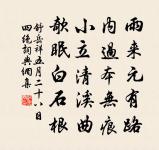 雨来元有路
内過本無痕
小立清溪曲
欹眠白石根
舒岳祥五月二十八日
四绝詞典佣集